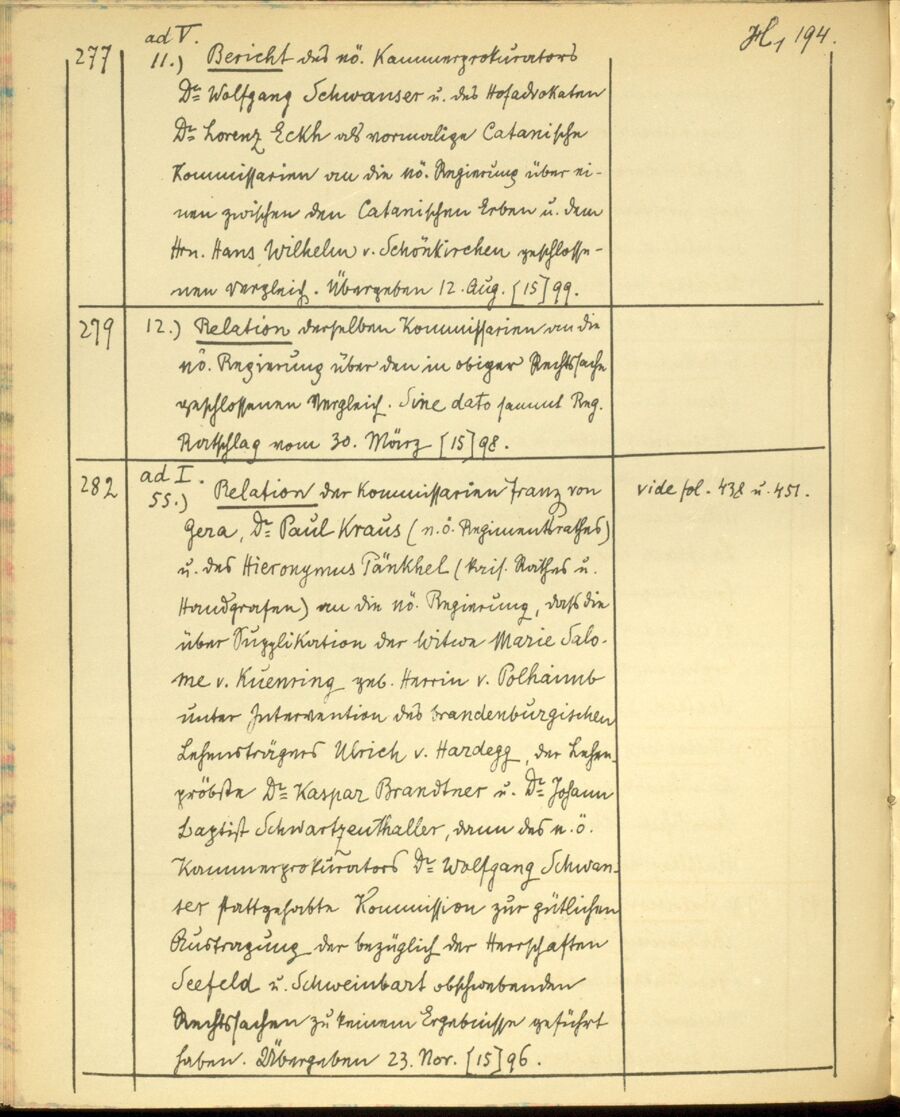 H, 194.
277 ad V.
11.) Bericht des nö. Kammerprokurators
Dr Wolfgang Schwanser u. des Hofadvokaten
Dr Lorenz Eckh als vormalige Catanische
Kommissarien an die nö. Regierung über ei-
nen zwischen den Catanischen Erben u. dem
Hrn. Hans Wilhelm v. Schönkirchen geschlosse-
nen Vergleich. Übergeben 12. Aug. [15]99.
279 12.) Relation derselben Kommissarien an die
nö. Regierung über den in obiger Rechtssache
geschlossenen Vergleich. Sine dato sammt Reg.
Ratschlag vom 30. März [15]98.
282 ad I.
55.) Relation der Kommissarien Franz von vide fol. 438 u. 451.
Gera, Dr Paul Kraus (n. ö. Regimentsrathes)
u. des Hieronymus Tänkhel (kais. Rathes u.
Handgrafen) an die nö. Regierung, daß die
über Supplikation der Witwe Marie Salo-
me v. Kuenring geb. Herrin v. Polhaimb
unter Intervention des brandenburgischen
Lehensträgers Ulrich v. Hardegg, der Lehen-
pröbste Dr Kaspar Brandtner u. Dr Johann
Baptist Schwartzenthaller, dann des n. ö.
Kammerprokurators Dr Wolfgang Schwan-
ser stattgehabte Kommission zur gütlichen
Austragung der bezüglich der Herrschaften
Seefeld u. Schweinbart obschwebenden
Rechtssachen zu keinem Ergebnisse geführt
haben. Übergeben 23. Nov. [15]96.